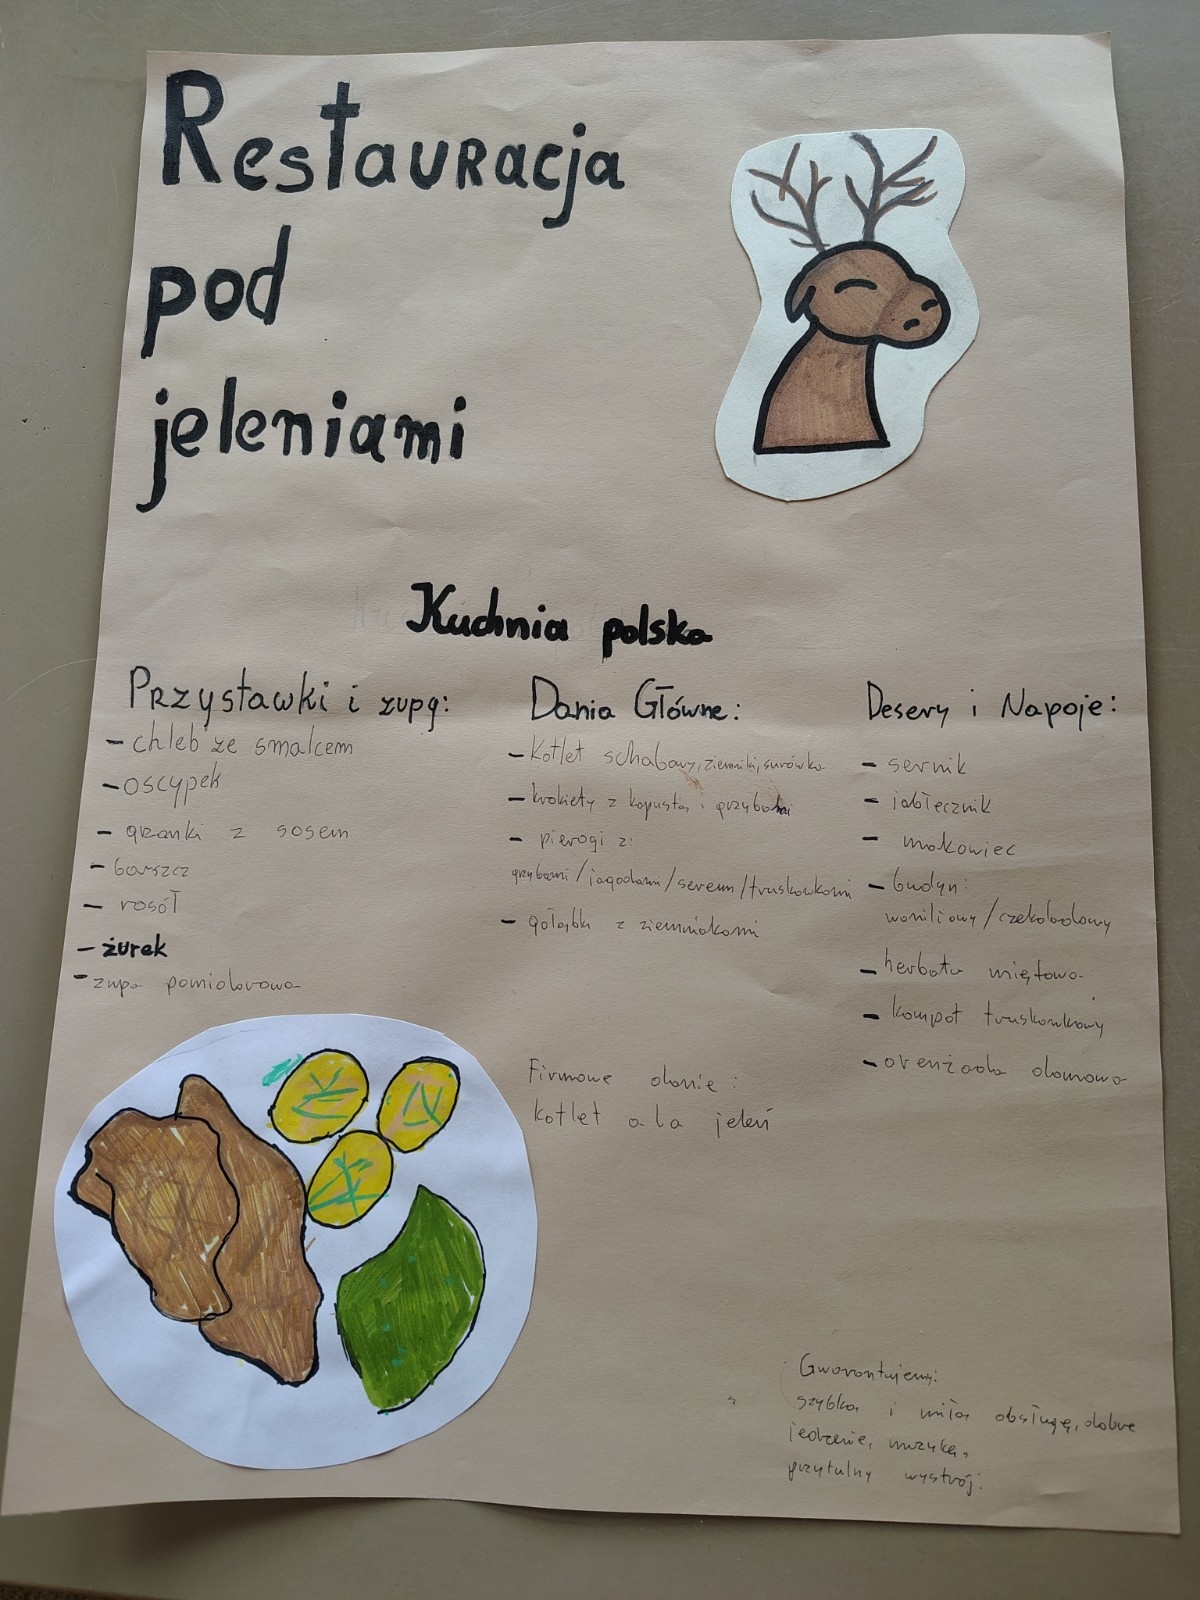 Restauracja
pod
jeleniami
Kuchnia polska
Przystawki i zupy:
- chleb ze smalcem
- oscypek
- grzanki z sosem
- barszcz
- rosół
- żurek
- zupa pomidorowa
Dania Główne:
- Kotlet schabowy, ziemniki, surówka
- krokiety z kapustą i grzybami
- pierogi z:
grzybami/jagodami/serem/truskawkami
- gołąbki z ziemniakami
Firmowe danie:
kotlet a la jeleń
Desery i Napoje:
- sernik
- jabłecznik
- makowiec
- budyń:
waniliowy/czekoladowy
- herbata miętowa
- kompot truskawkowy
- oranżada domowa
Gwarantujemy:
szybką i miłą obsługę, dobre
jedzenie, muzykę,
przytulny wystrój.